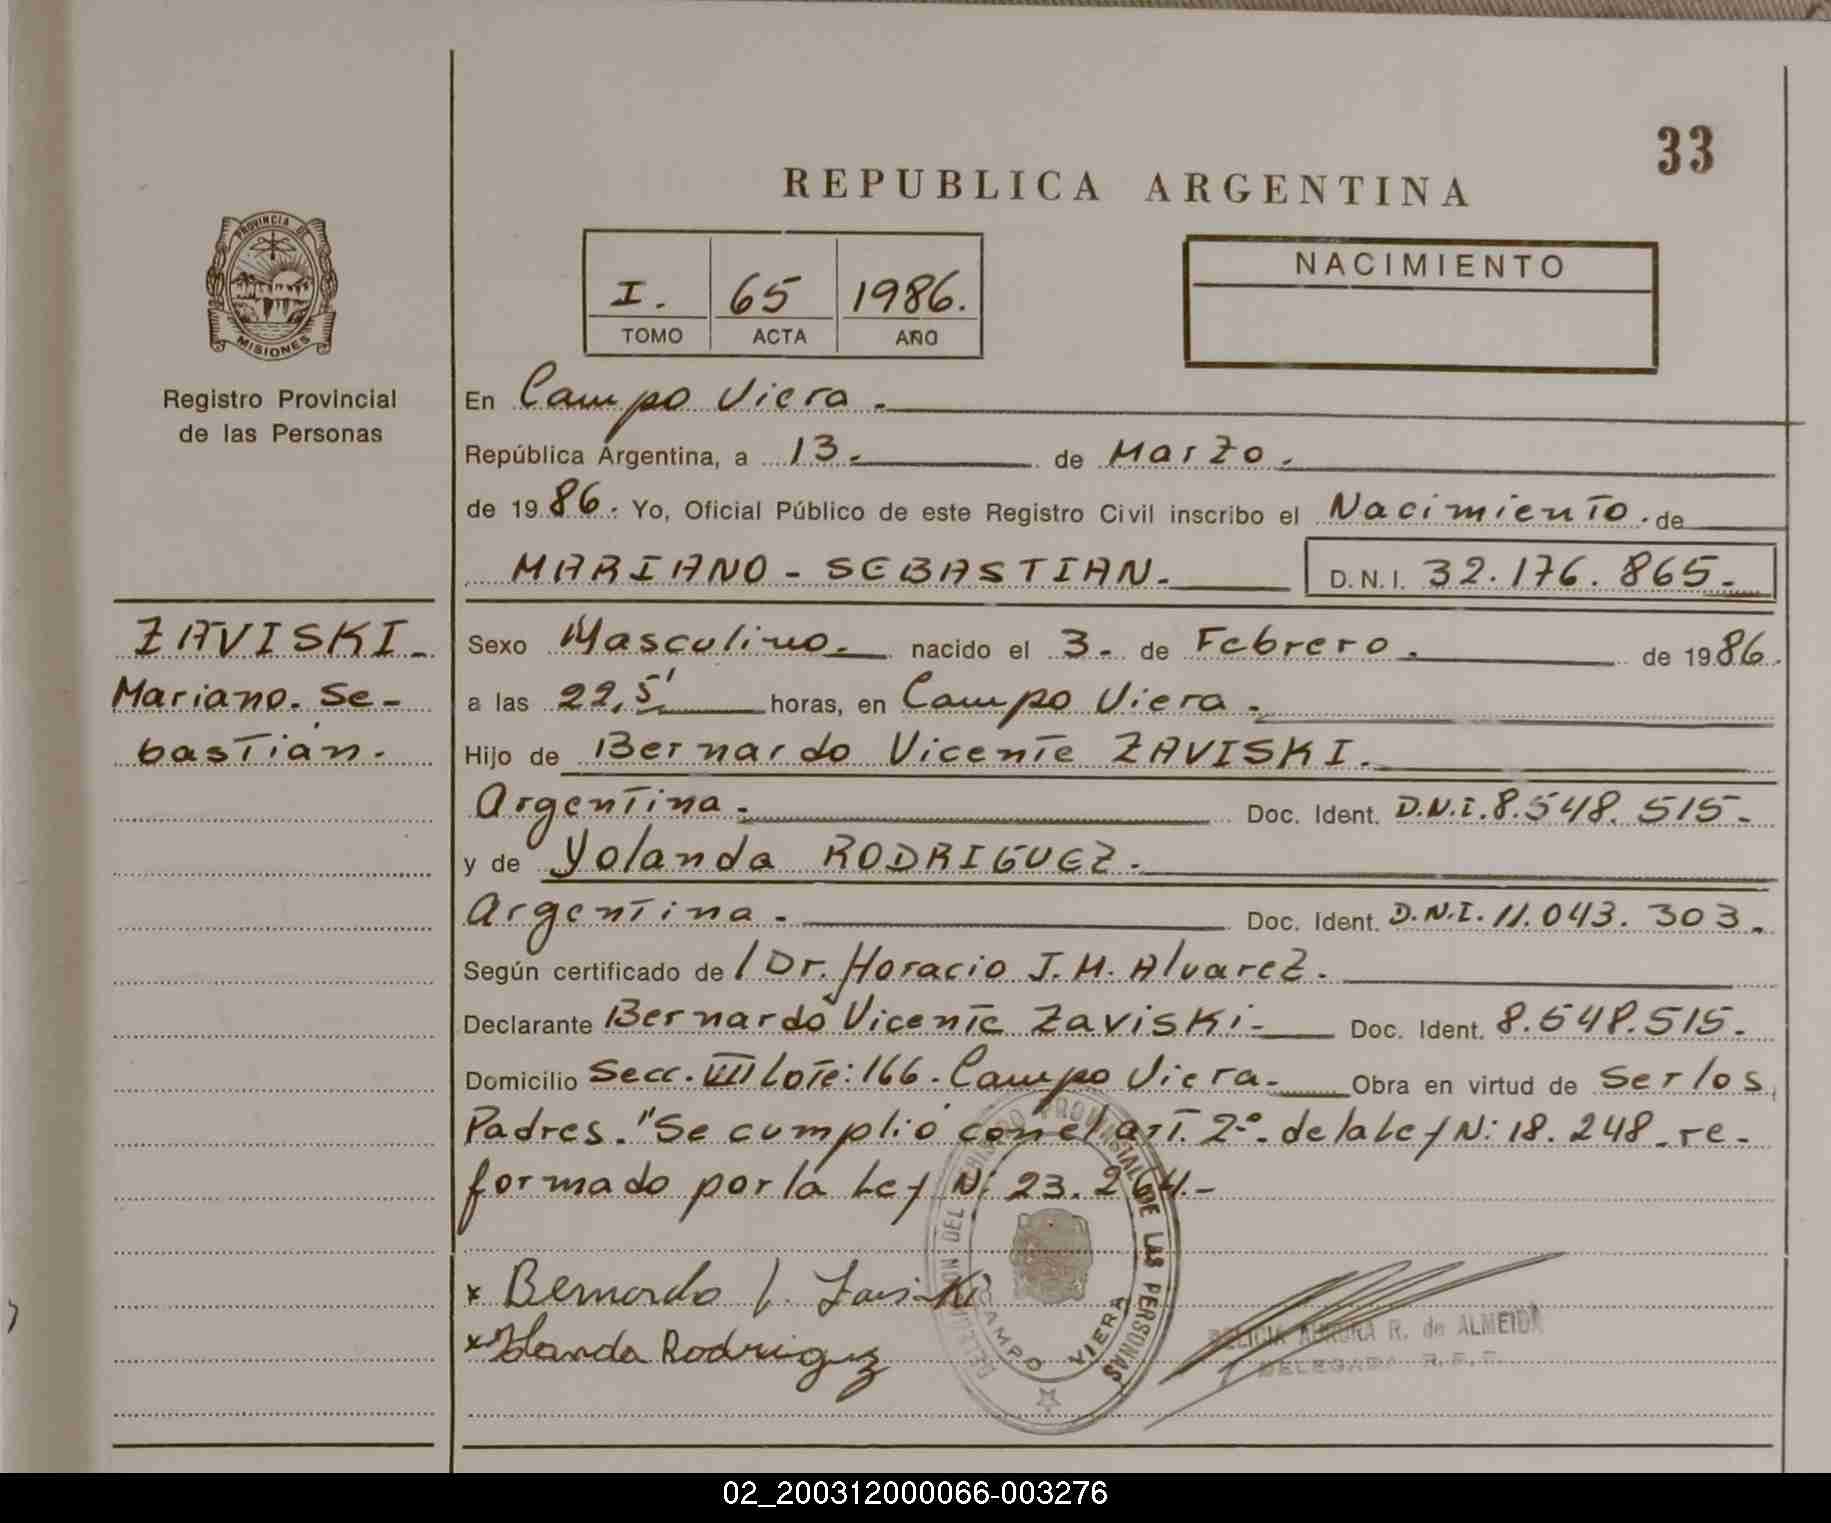 33
REPUBLICA ARGENTINA
PROVINCIA DE
MISIONES
Registro Provincial
de las Personas
I. 65 1986.
TOMO ACTA AÑO
NACIMIENTO
En Campo Viera.
República Argentina, a 13. de Marzo.
de 1986. Yo, Oficial Público de este Registro Civil inscribo el Nacimiento. de
MARIANO - SEBASTIAN. D.N.I. 32.176.865.
ZAVISKI
Mariano. Se-
bastián.
Sexo Masculino. nacido el 3. de Febrero. de 1986.
a las 22,5' horas, en Campo Viera.
Hijo de Bernardo Vicente ZAVISKI.
Argentina. Doc. Ident. D.N.I. 8.548.515-
y de Yolanda RODRIGUEZ.
Argentina. Doc. Ident. D.N.I. 11.043.303.
Según certificado de / Dr. Horacio J. M. Alvarez.
Declarante Bernardo Vicente Zaviski. Doc. Ident. 8.548.515.
Domicilio Secc. VII Lote: 166. Campo Viera. Obra en virtud de Ser los
Padres. "Se cumplió con el art. 2º. de la Ley N: 18.248 - re-
formado por la Ley N: 23.264.-
x Bernardo V. Zaviski
x Yolanda Rodriguez
DELEGACION DEL REGISTRO PROVINCIAL DE LAS PERSONAS
CAMPO VIERA
AURORA R. de ALMEIDA
DELEGADA
02_200312000066-003276